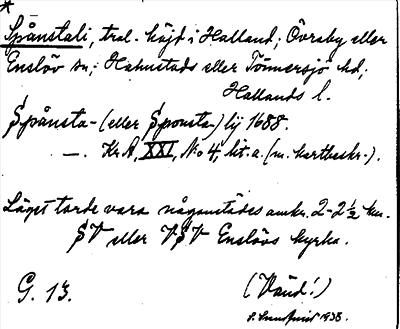 *
Spånstali, tral. höjd i Halland; Övraby eller
Enslöv sn; Halmstads eller Tönnersjö hd,
Hallands l.
Spånsta- (eller Sponsta-) lij 1688.
—. Kr.A, XXI, No 4, lit. a. (m. kartbeskr.).
Läget torde vara någonstädes omkr. 2-2½ km.
SV eller VSV Enslövs kyrka.
G. 13. (Vänd!)
1938.